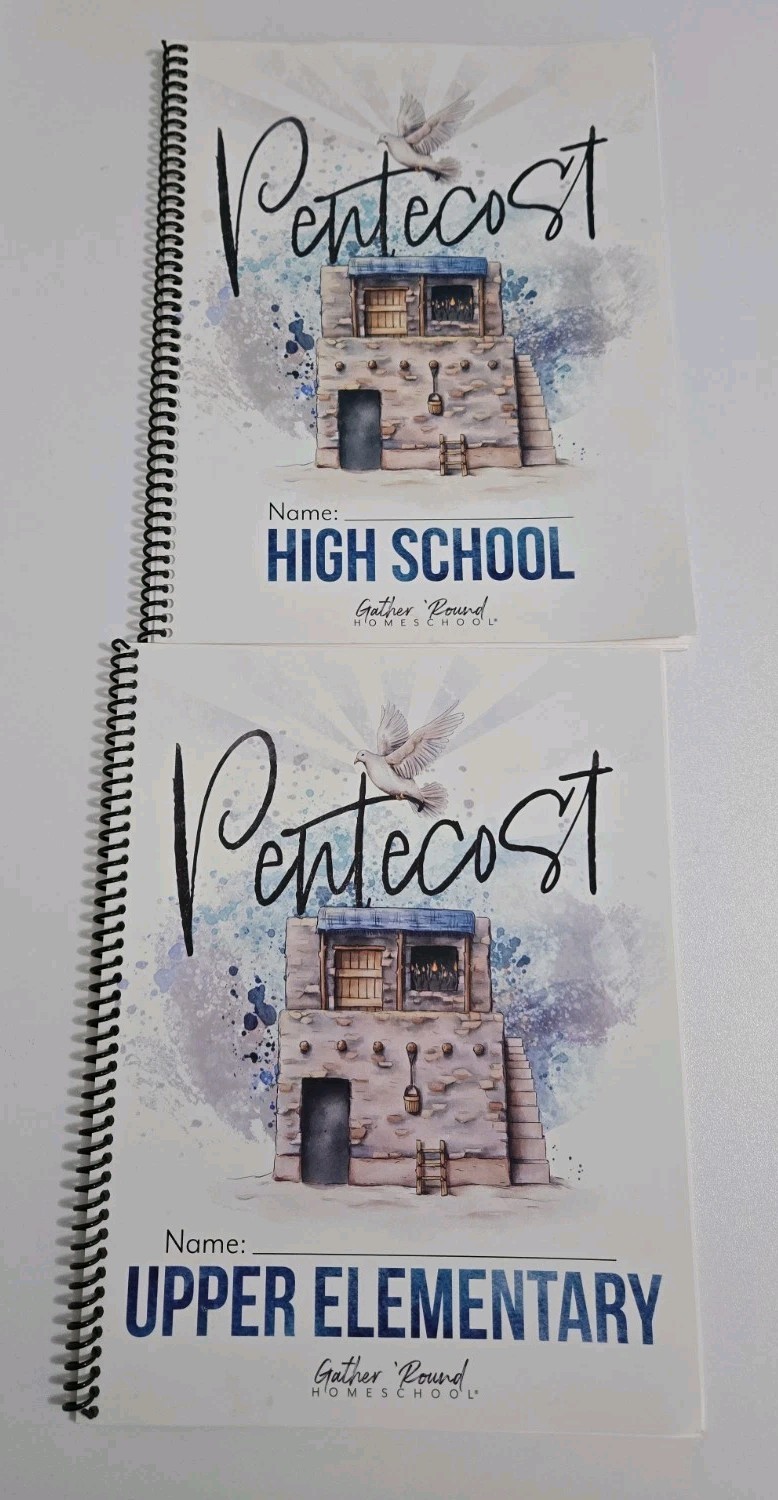 Pentecost
Name:
HIGH SCHOOL
Gather 'Round
HOMESCHOOL®
Pentecost
Name:
UPPER ELEMENTARY
Gather 'Round
HOMESCHOOL®